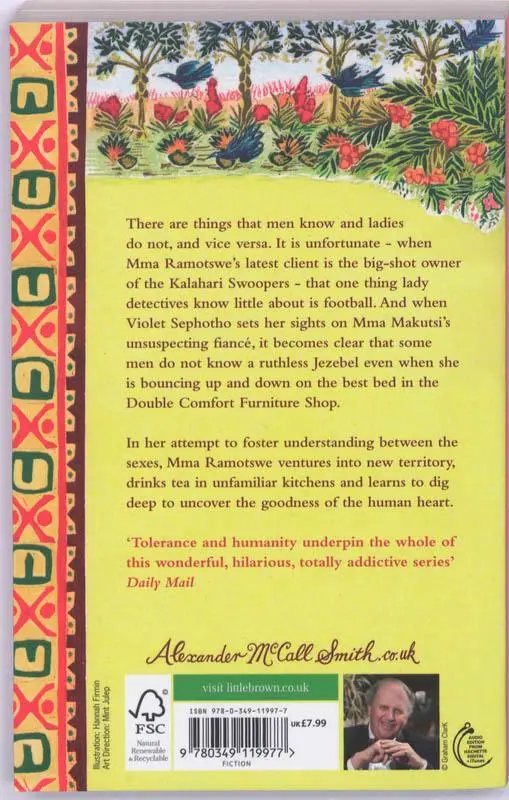 There are things that men know and ladies
do not, and vice versa. It is unfortunate - when
Mma Ramotswe's latest client is the big-shot owner
of the Kalahari Swoopers - that one thing lady
detectives know little about is football. And when
Violet Sephotho sets her sights on Mma Makutsi's
unsuspecting fiancé, it becomes clear that some
men do not know a ruthless Jezebel even when she
is bouncing up and down on the best bed in the
Double Comfort Furniture Shop.
In her attempt to foster understanding between the
sexes, Mma Ramotswe ventures into new territory,
drinks tea in unfamiliar kitchens and learns to dig
deep to uncover the goodness of the human heart.
'Tolerance and humanity underpin the whole of
this wonderful, hilarious, totally addictive series'
Daily Mail
Alexander McCall Smith.co.uk
Illustration: Hannah Firmin
Art Direction: Mint Julep
FSC
Natural
Renewable
& Recyclable
visit littlebrown.co.uk
ISBN 978-0-349-11997-7
9 780349 119977 >
FICTION
UK £7.99
© Graham Clark
AUDIO
EDITION
FROM
HACHETTE
DIGITAL
& iTunes